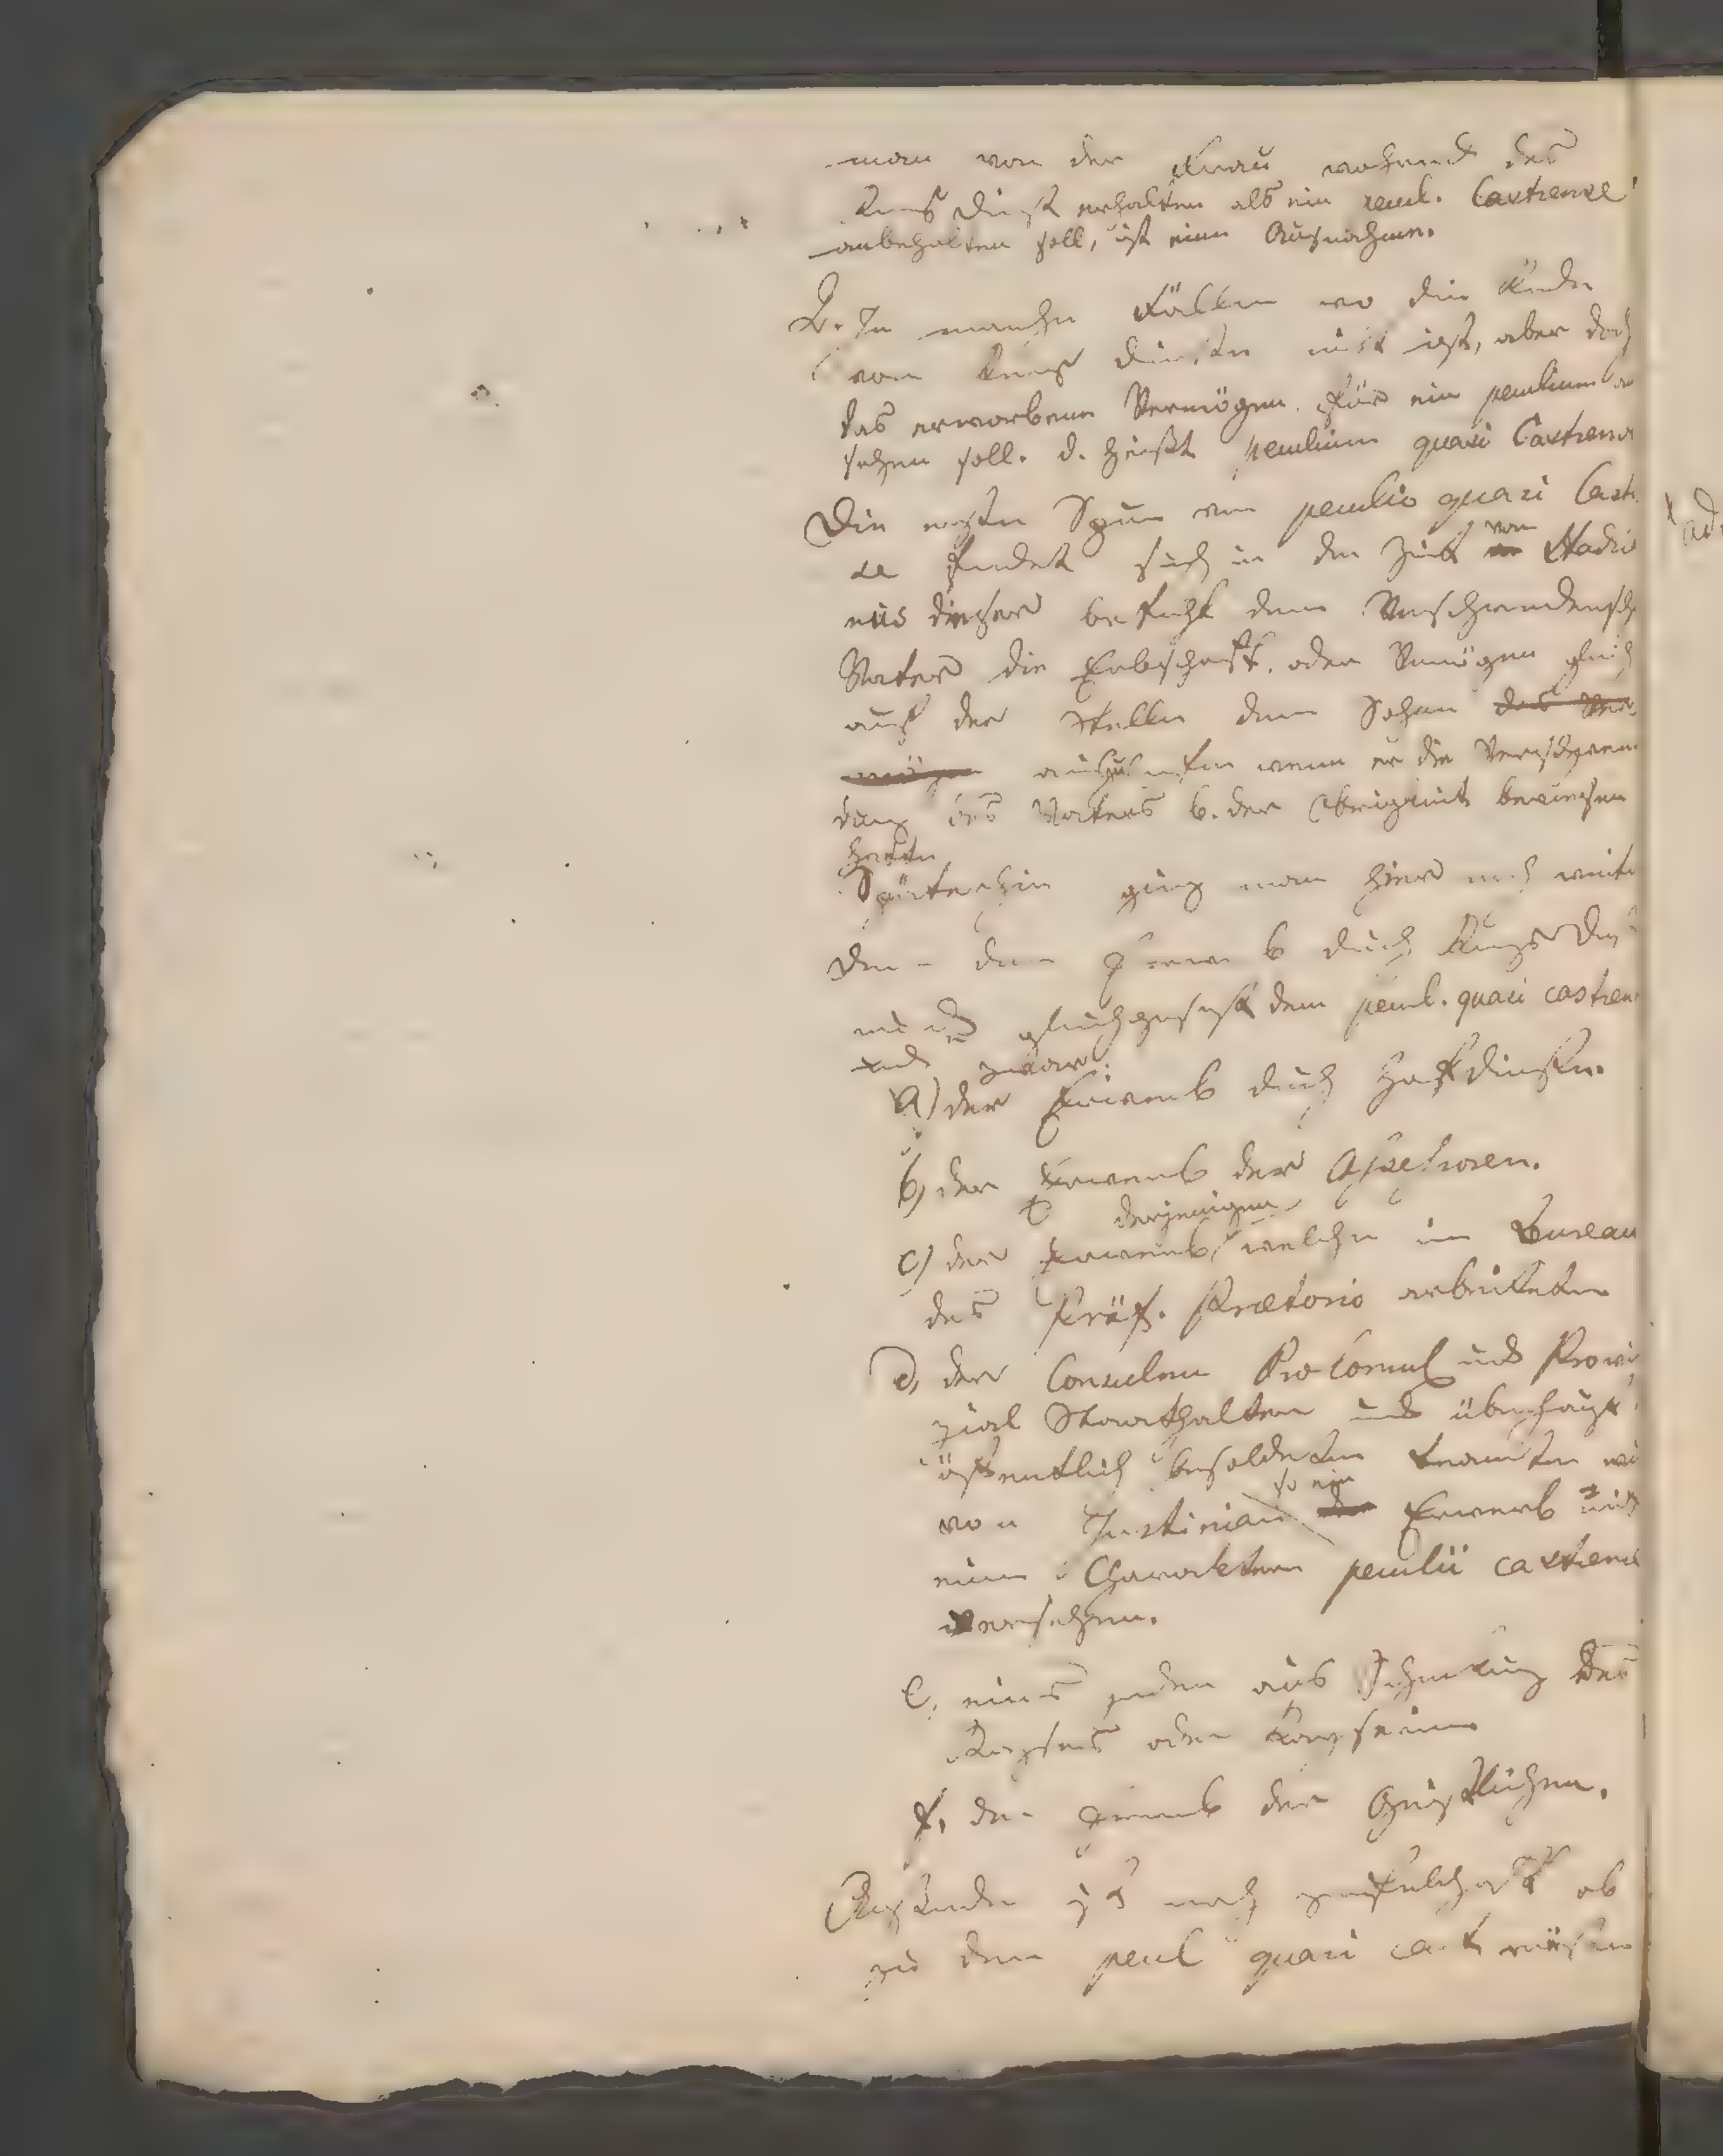 man von der Frau während des
Kriegsdienst erhalten als ein pecul. Castrense
anbehalten soll, ist eine Ausnahme.
2. In manchen Fällen wo die Rede
von Kriegsdiensten nicht ist, aber doch
das erworbene Vermögen für ein peculium
sehen soll. d. heißt peculium quasi Castrense
Die ersten Spur vom peculio quasi Cast
se findet sich in der Zeit von Hadria
nus dieser befiehlt dem Verschwenderisch
Vaters die Erbschaft, oder Vermögen gleich
auf der Stelle dem Sohne das Ver
mögen wenn er die Verschwen
dung des Vaters b. der Obrigkeit bewiesen
hatte
Späterhin ging man hier noch weiter
denn dem Erwerb durch Kriegsdien
wird gleichgesetzt dem pecul. quasi castren
und zwar:
a) der Erwerb durch Hofdiensten.
b) der Erwerb der Assessoren.
derjenigen
c) der Erwerb, welche im Bureau
des Präf. Prætorio arbeiteten
d, der Consulen ProConsul und Provin
zial Staathaltern und überhaupt
öffentlich besoldeten Beamten wie
von Justinian so ein der Erwerb mit
einem Charakter peculii castrens
versehen.
e, eines jeden aus Schenkung des
Kaysers oder Kayserinn
f, der Erwerb der Geistlichen.
Ausserdem ist noch zweifelhaft ob
zu dem pecul quasi cast